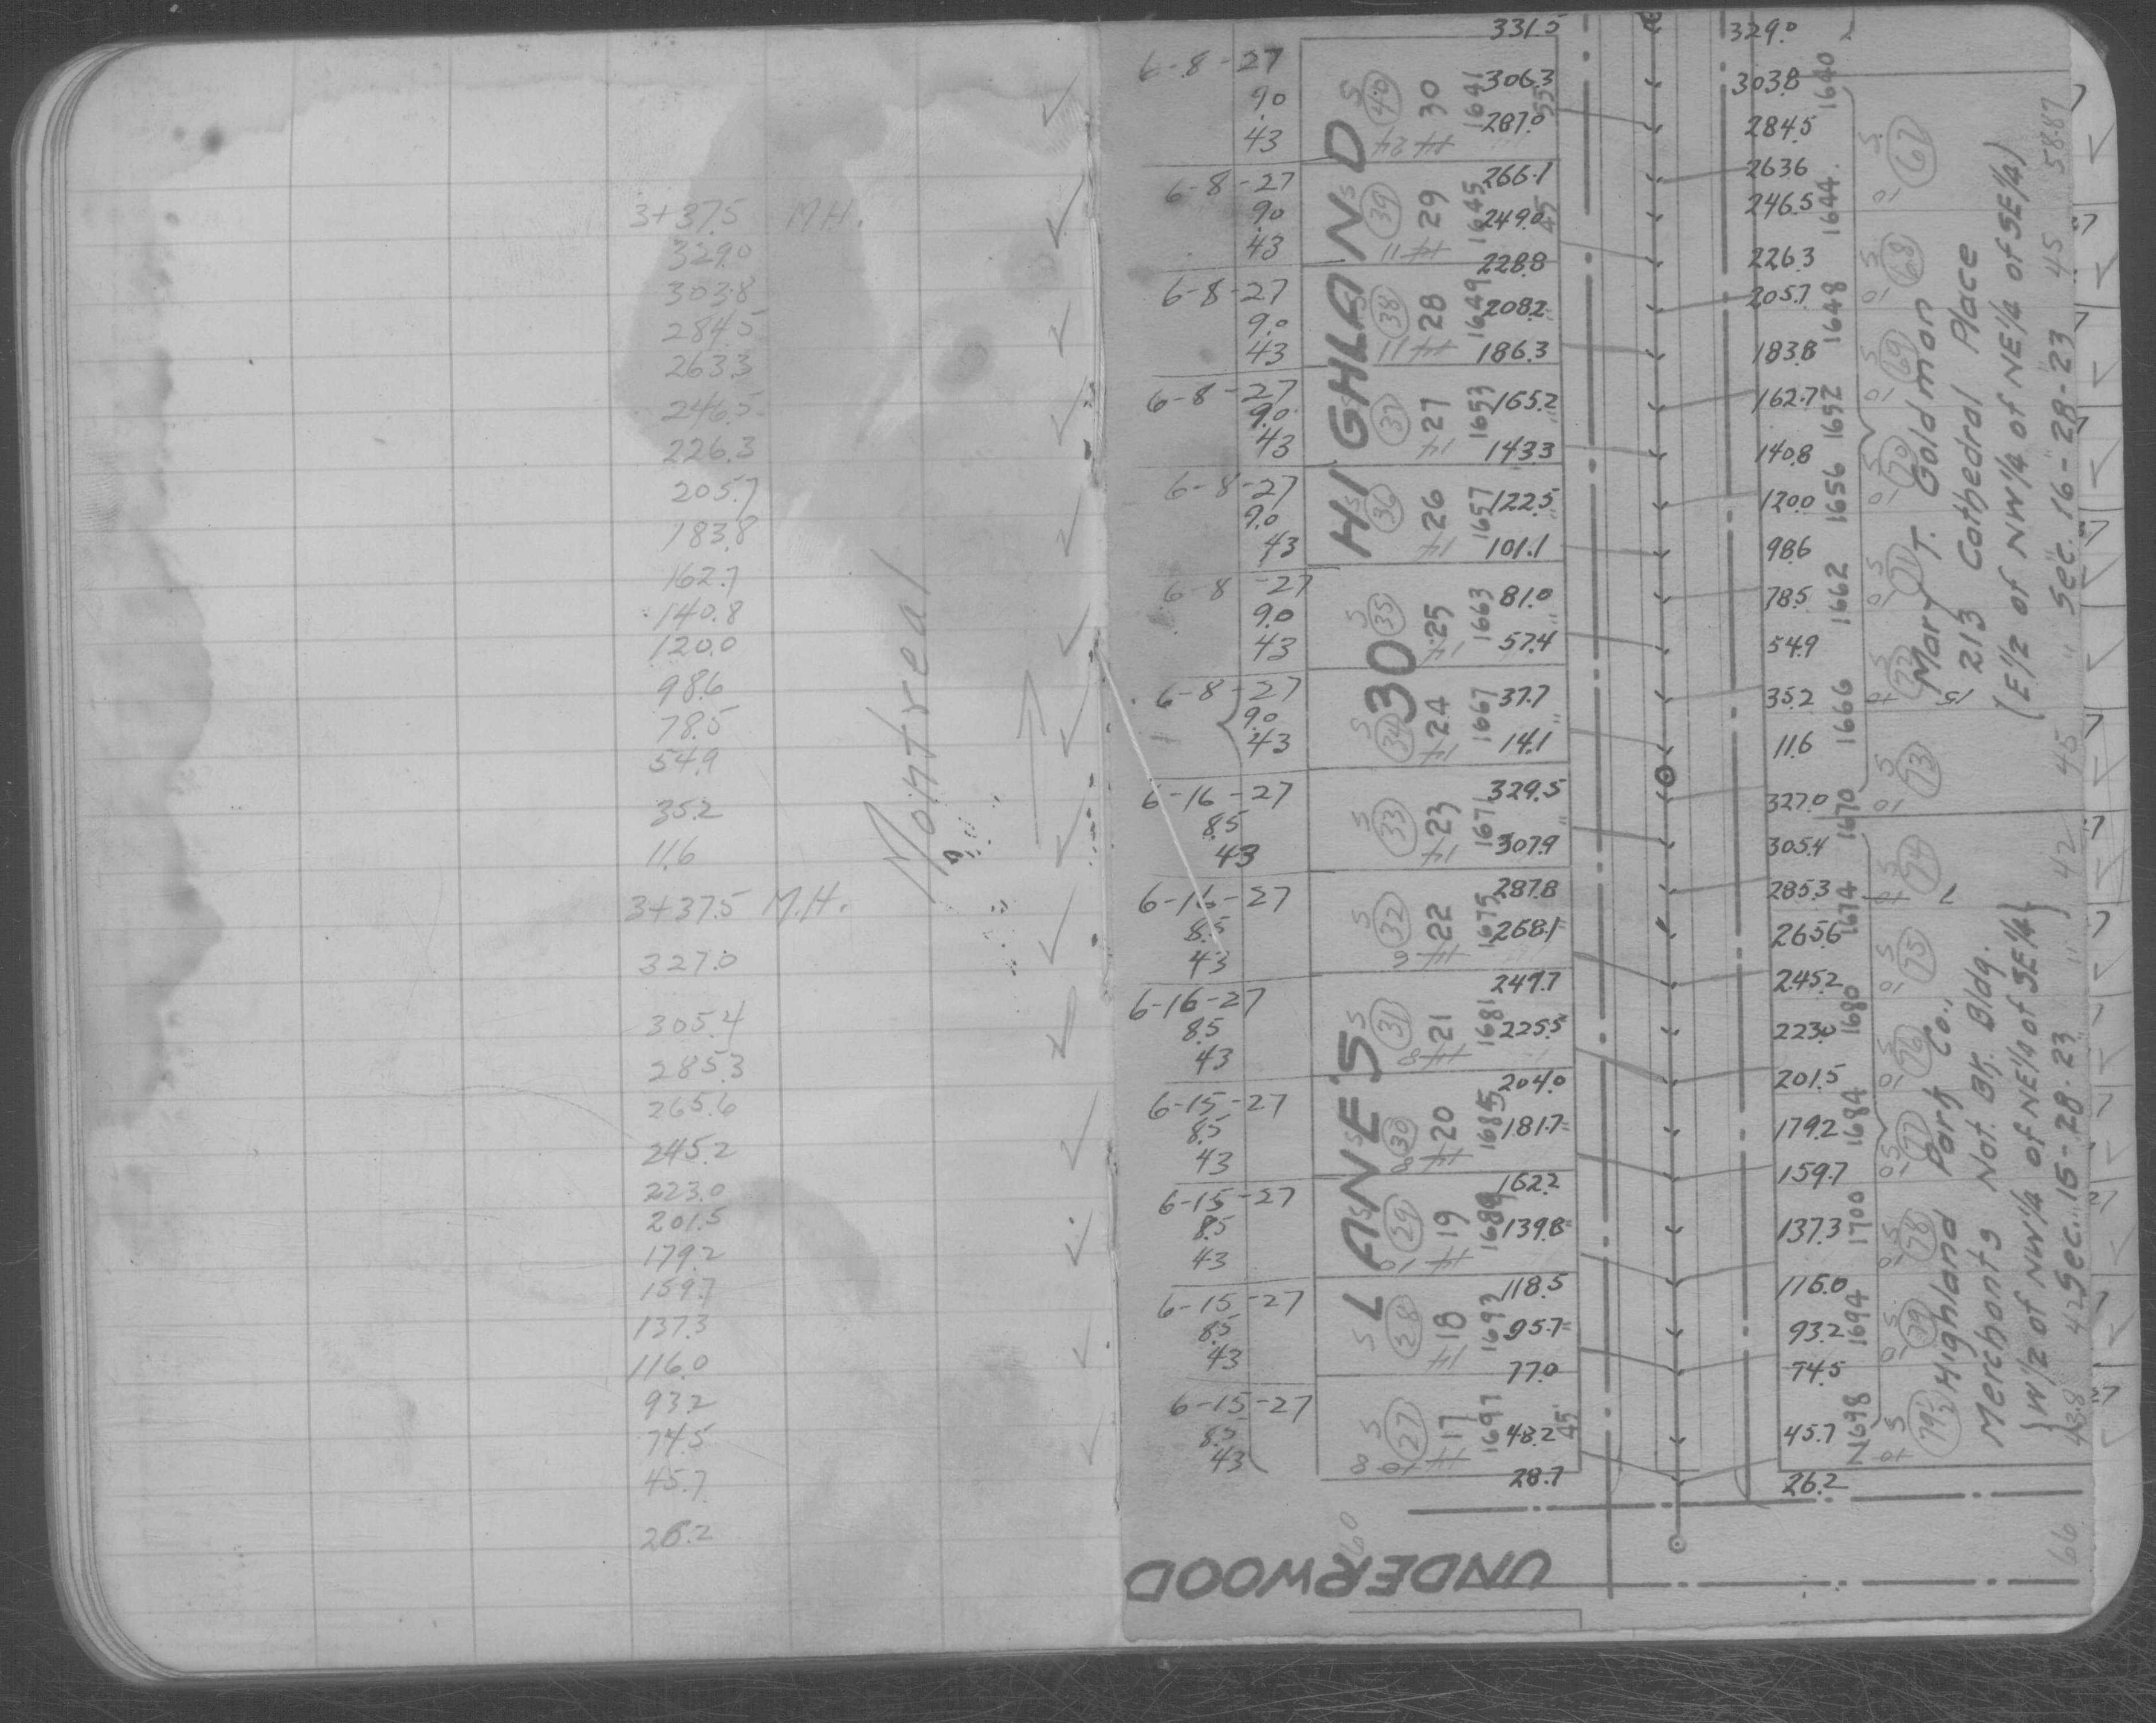 3+37.5 M.H.
329.0
303.8
284.5
263.3
246.5
226.3
205.7
183.8
162.7
140.8
120.0
98.6
78.5
54.9
35.2
11.6
3+37.5 M.H.
327.0
305.4
285.3
265.6
245.2
223.0
201.5
179.2
159.7
137.3
116.0
93.2
74.5
45.7
26.2
Montreal
6-8-27
9.0
43
6-8-27
9.0
43
6-8-27
9.0
43
6-8-27
9.0
43
6-8-27
9.0
43
6-8-27
9.0
43
6-8-27
9.0
43
6-16-27
8.5
43
6-16-27
8.5
43
6-16-27
8.5
43
6-15-27
8.5
43
6-15-27
8.5
43
6-15-27
8.5
43
6-15-27
8.5
43
LANE'S 30 HIGHLAND
S 40
S 39
S 38
S 37
S 36
S 35
S 34
S 33
S 32
S 31
S 30
S 29
S 28
S 27
30
29
28
27
26
25
24
23
22
21
20
19
18
17
1641
1645
1649
1653
1657
1663
1667
1671
1675
1681
1685
1689
1693
1697
331.5
306.3
287.0
266.1
249.0
228.8
208.2
186.3
165.2
143.3
122.5
101.1
81.0
57.4
37.7
14.1
329.5
307.9
287.8
268.1
249.7
225.5
204.0
181.7
162.2
139.8
118.5
95.7
77.0
48.2
28.7
329.0
303.8
284.5
263.6
246.5
226.3
205.7
183.8
162.7
140.8
120.0
98.6
78.5
54.9
35.2
11.6
327.0
305.4
285.3
265.6
245.2
223.0
201.5
179.2
159.7
137.3
116.0
93.2
74.5
45.7
26.2
1640
1644
1648
1652
1656
1662
1666
1670
1674
1680
1684
1700
1694
1698
S 67
S 68
S 69
S 70
S 71
S 72
S 73
S 74
S 75
S 76
S 77
S 78
S 79
Mary T. Goldman
213 Cathedral Place
(E½ of NW¼ of NE¼ of SE¼)
45 " Sec. 16-28-23 45 58.87
Highland Park Co.,
Merchants Nat. Bk. Bldg.
{W½ of NW¼ of NE¼ of SE¼}
43.8 42 Sec. 15-28-23 " 42
66
60
UNDERWOOD